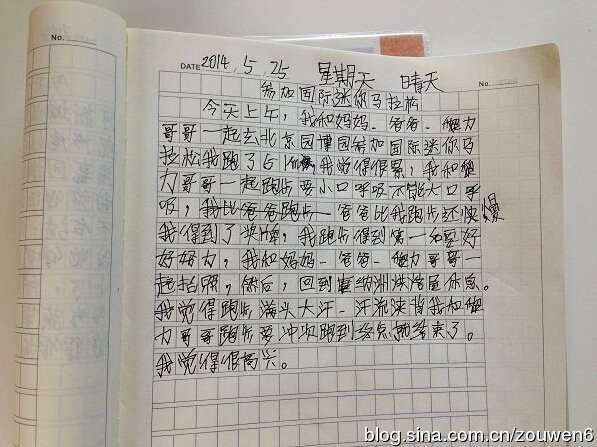 No.
DATE 2014.5.25 星期天 晴天 No.
参加国际迷你马拉松
今天上午，我和妈妈、爸爸、魏力
哥哥一起去北京园博园参加国际迷你马
拉松我跑了后 我觉得很累，我和魏
力哥哥一起跑步要小口呼吸不能大口呼
吸，我比爸爸跑步 爸爸比我跑步还快慢
我得到了奖牌，我跑步得到第一名要好
好努力，我和妈妈、爸爸、魏力哥哥一
起拍照，然后，回到 纳洲 休息。
我觉得跑步满头大汗、汗流浃背我和魏
力哥哥跑步要冲次跑到终点就结束了。
我觉得很高兴。
blog.sina.com.cn/zouwen6